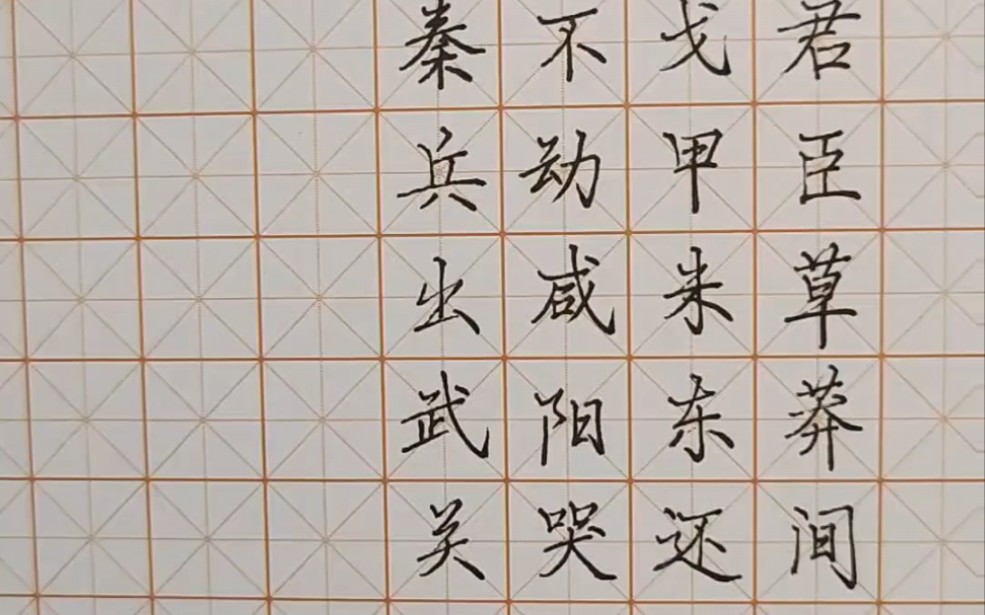 君臣草莽间
戈甲未东还
不动咸阳哭
秦兵出武关